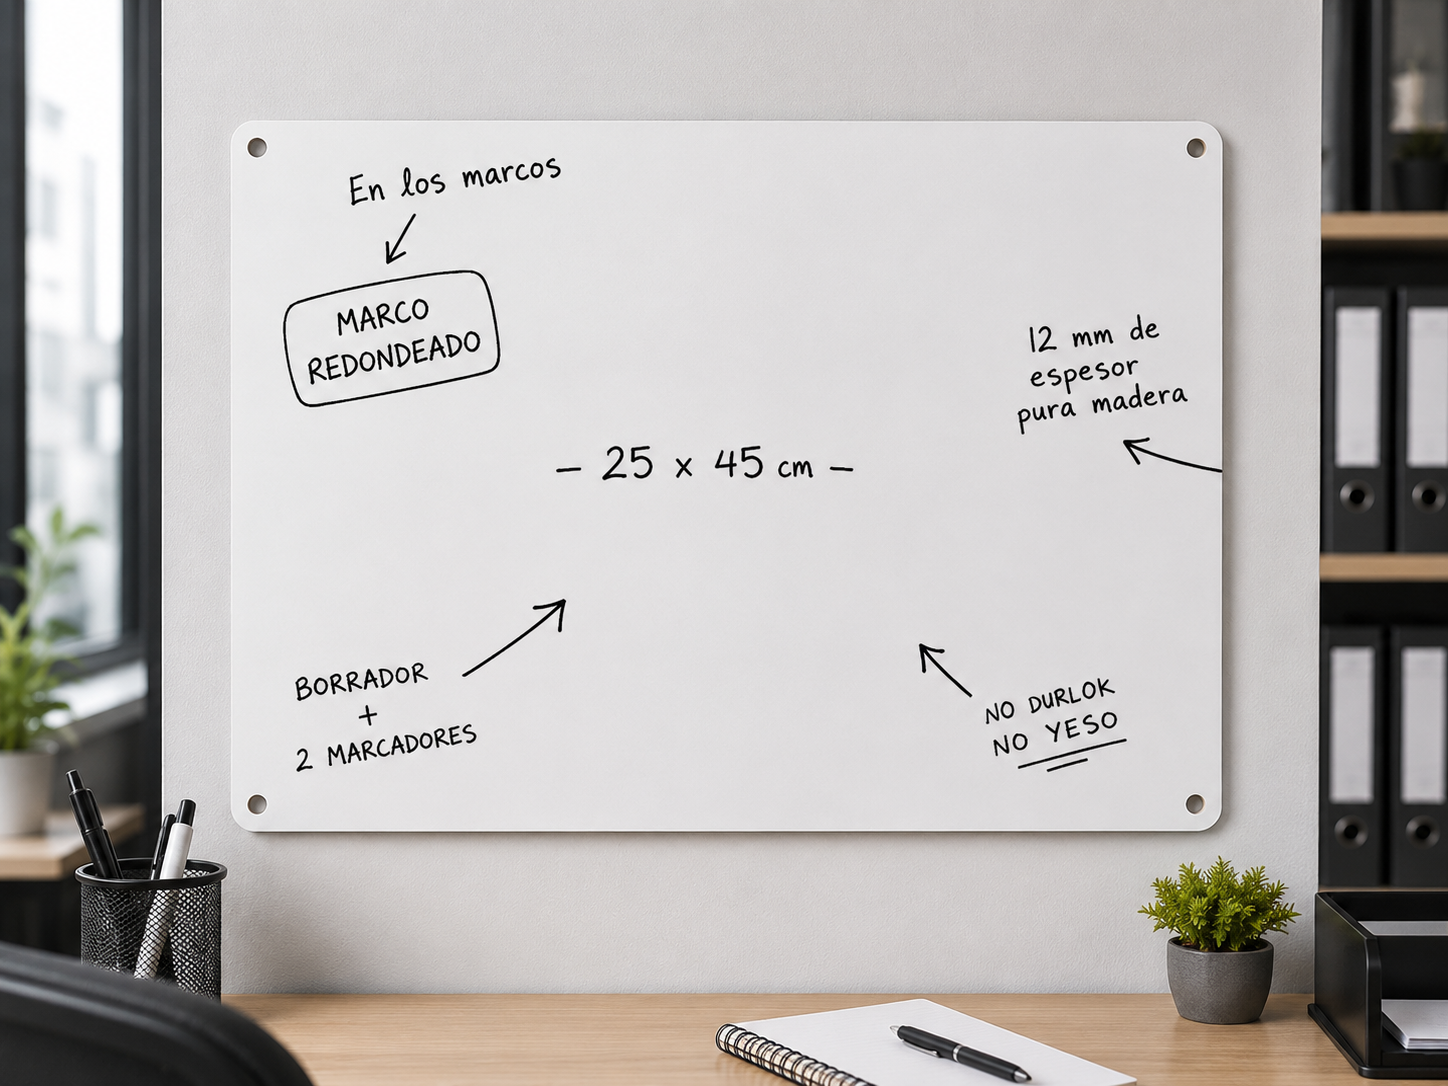 En los marcos
MARCO
REDONDEADO
12 mm de
espesor
pura madera
– 25 x 45 cm –
BORRADOR
+
2 MARCADORES
NO DURLOK
NO YESO